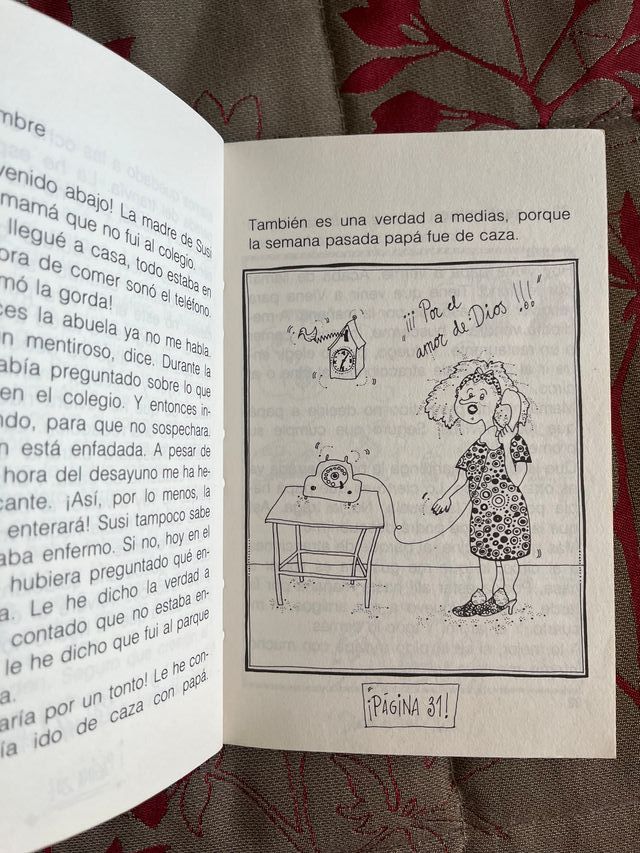 mbre
venido abajo! La madre de Susi
mamá que no fui al colegio.
llegué a casa, todo estaba en
ora de comer sonó el teléfono.
mó la gorda!
ces la abuela ya no me habla.
un mentiroso, dice. Durante la
abía preguntado sobre lo que
en el colegio. Y entonces in-
ndo, para que no sospechara.
n está enfadada. A pesar de
hora del desayuno me ha he-
cante. ¡Así, por lo menos, la
enterará! Susi tampoco sabe
aba enfermo. Si no, hoy en el
hubiera preguntado qué en-
a. Le he dicho la verdad a
contado que no estaba en-
le he dicho que fui al parque
a.
aría por un tonto! Le he con-
ía ido de caza con papá.
También es una verdad a medias, porque
la semana pasada papá fue de caza.
"¡¡¡ Por el
amor de Dios !!!"
¡PÁGINA 31!